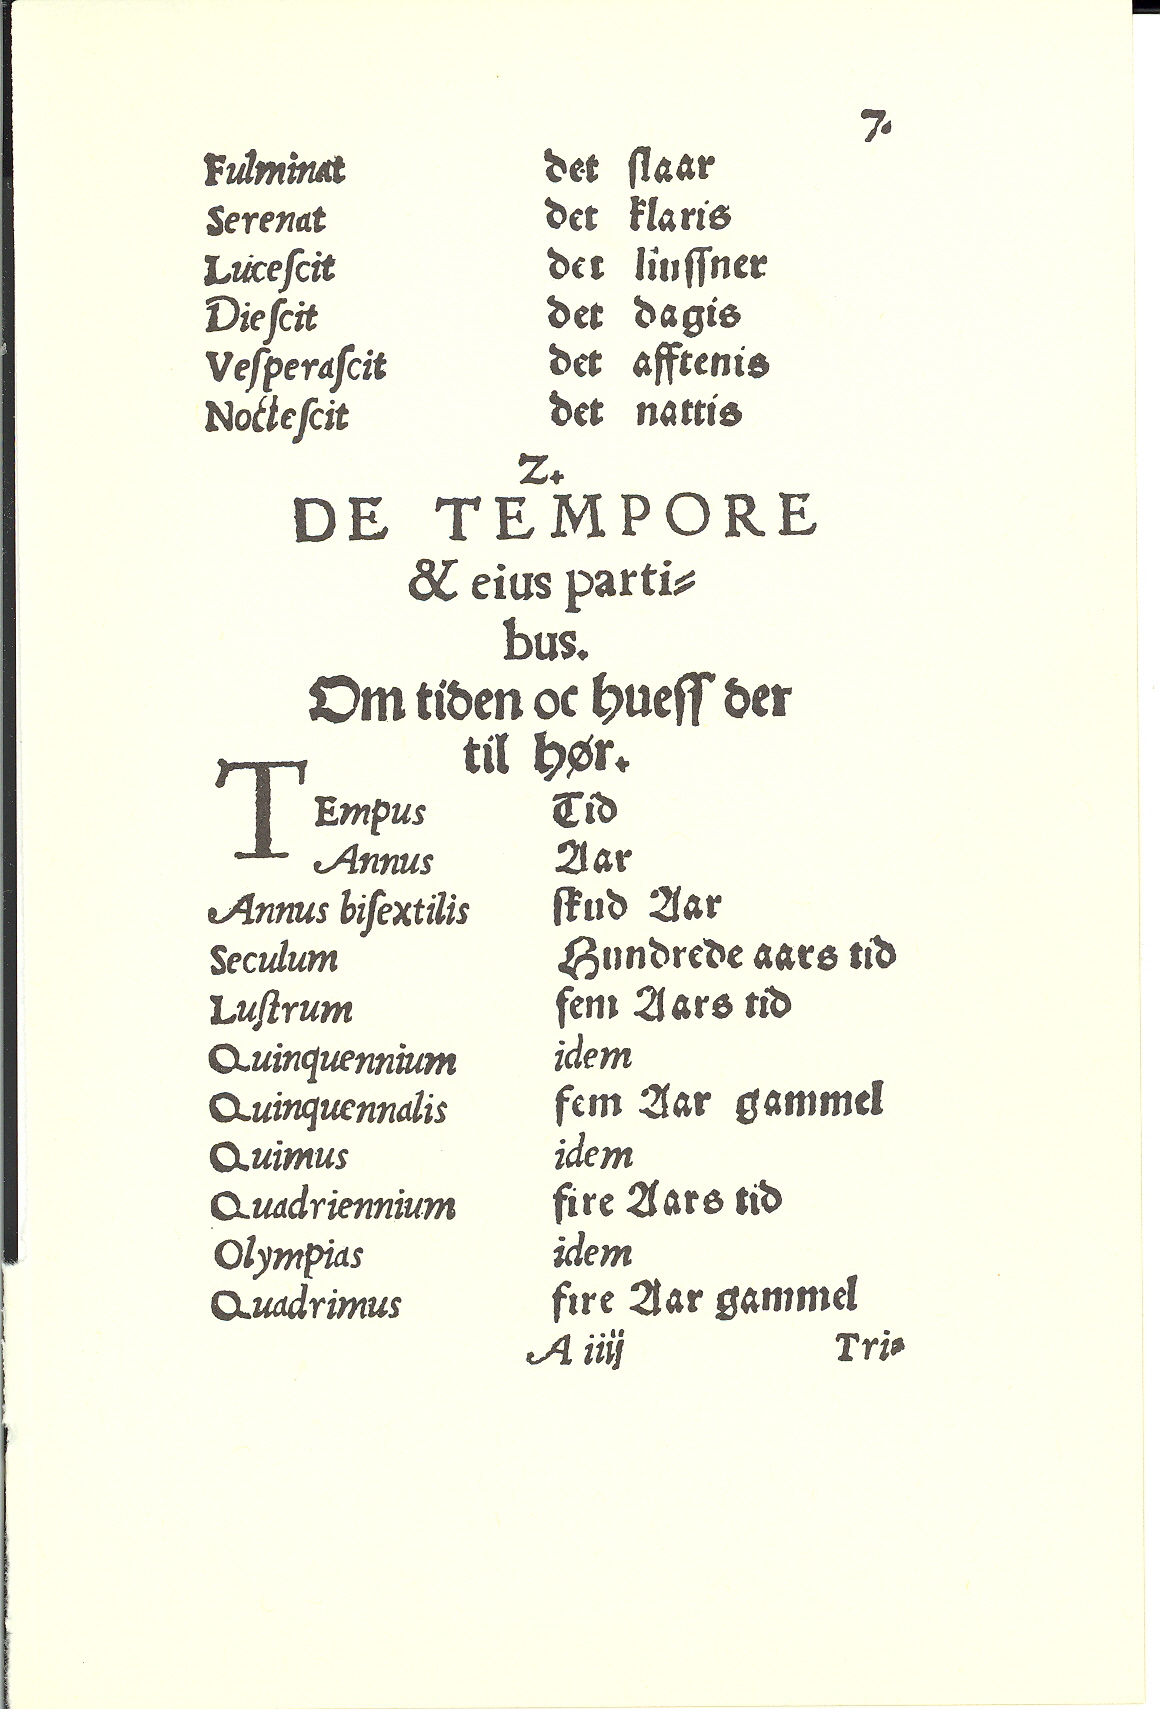 7.
Fulminat det ſlaar
Serenat det klaris
Luceſcit det liuſſner
Dieſcit det dagis
Veſperaſcit det afftenis
Nocteſcit det nattis
2.
DE TEMPORE
& eius parti⸗
bus.
Om tiden oc hueſſ der
til hør.
TEmpus Tid
Annus Aar
Annus biſextilis ſkud Aar
Seculum Hundrede aars tid
Luſtrum fem Aars tid
Quinquennium idem
Quinquennalis fem Aar gammel
Quimus idem
Quadriennium fire Aars tid
Olympias idem
Quadrimus fire Aar gammel
A iiij Tri⸗